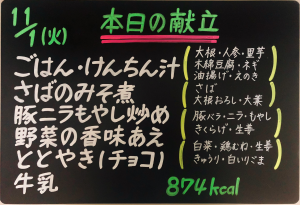 11/1(火) 本日の献立
ごはん・けんちん汁
さばのみそ煮
豚ニラもやし炒め
野菜の香味あえ
ととやき(チョコ)
牛乳
大根・人参・里芋
木綿豆腐・ネギ
油揚げ・えのき
さば
大根おろし・大葉
豚バラ・ニラ・もやし
きくらげ・生姜
白菜・鶏むね・生姜
きゅうり・白いりごま
874kcal